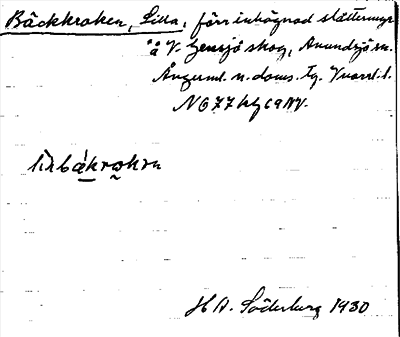 Bäckkroken, Lilla, förr inhägnad slåttermyr
å V. Gensjö skog, Anundsjö sn.
Ångml. n. doms. Tg. Vuornl. l.
N677 kf c9NV.
lı̀lbǽkrǫkrn
H A. Söderberg 1930